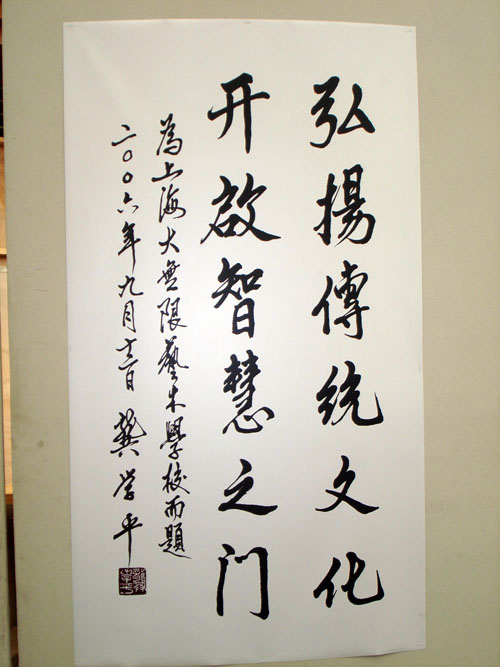 弘揚傳统文化
开啟智慧之门
為上海大無限藝术學校而題
二〇〇六年九月十二日 龔学平